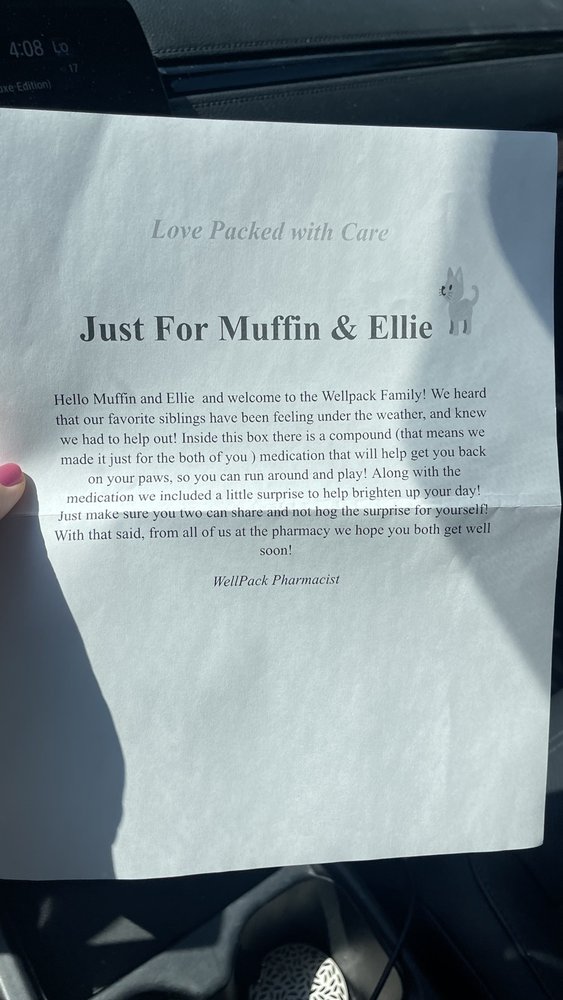 4:08 LO
17
uxe Edition)
Love Packed with Care
Just For Muffin & Ellie
Hello Muffin and Ellie and welcome to the Wellpack Family! We heard
that our favorite siblings have been feeling under the weather, and knew
we had to help out! Inside this box there is a compound (that means we
made it just for the both of you ) medication that will help get you back
on your paws, so you can run around and play! Along with the
medication we included a little surprise to help brighten up your day!
Just make sure you two can share and not hog the surprise for yourself!
With that said, from all of us at the pharmacy we hope you both get well
soon!
WellPack Pharmacist